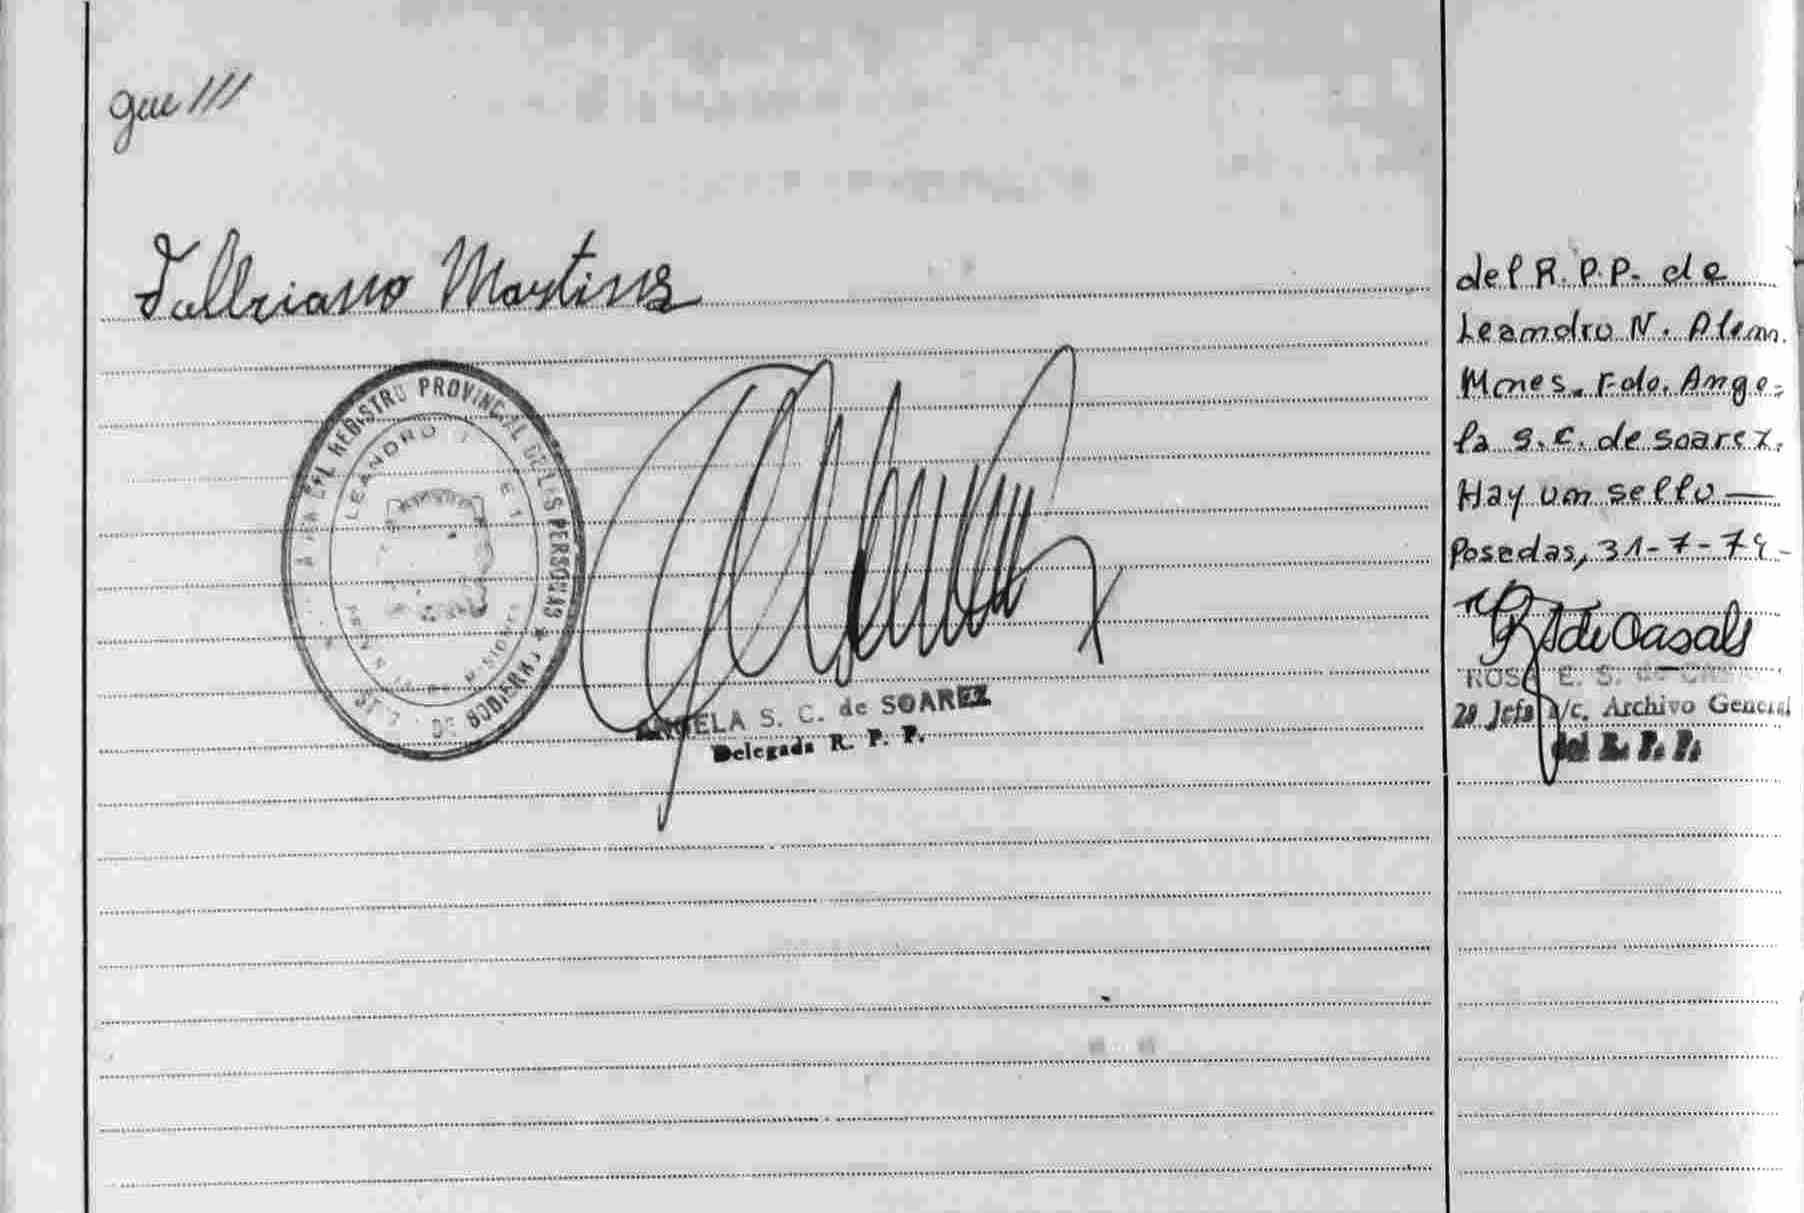 que ///
Martins
REGISTRO PROVINCIAL DE LAS PERSONAS
LEANDRO
ANGELA S. C. de SOAREZ
Delegada R. P. P.
del R. P. P. de
Leandro N. Alem.
Mnes. Fdo. Ange=
la S. C. de Soarez.
Hay un sello —
Posadas, 31-7-74-
ROSA E. S. de
2ª Jefa a/c. Archivo General
del R. P. P.